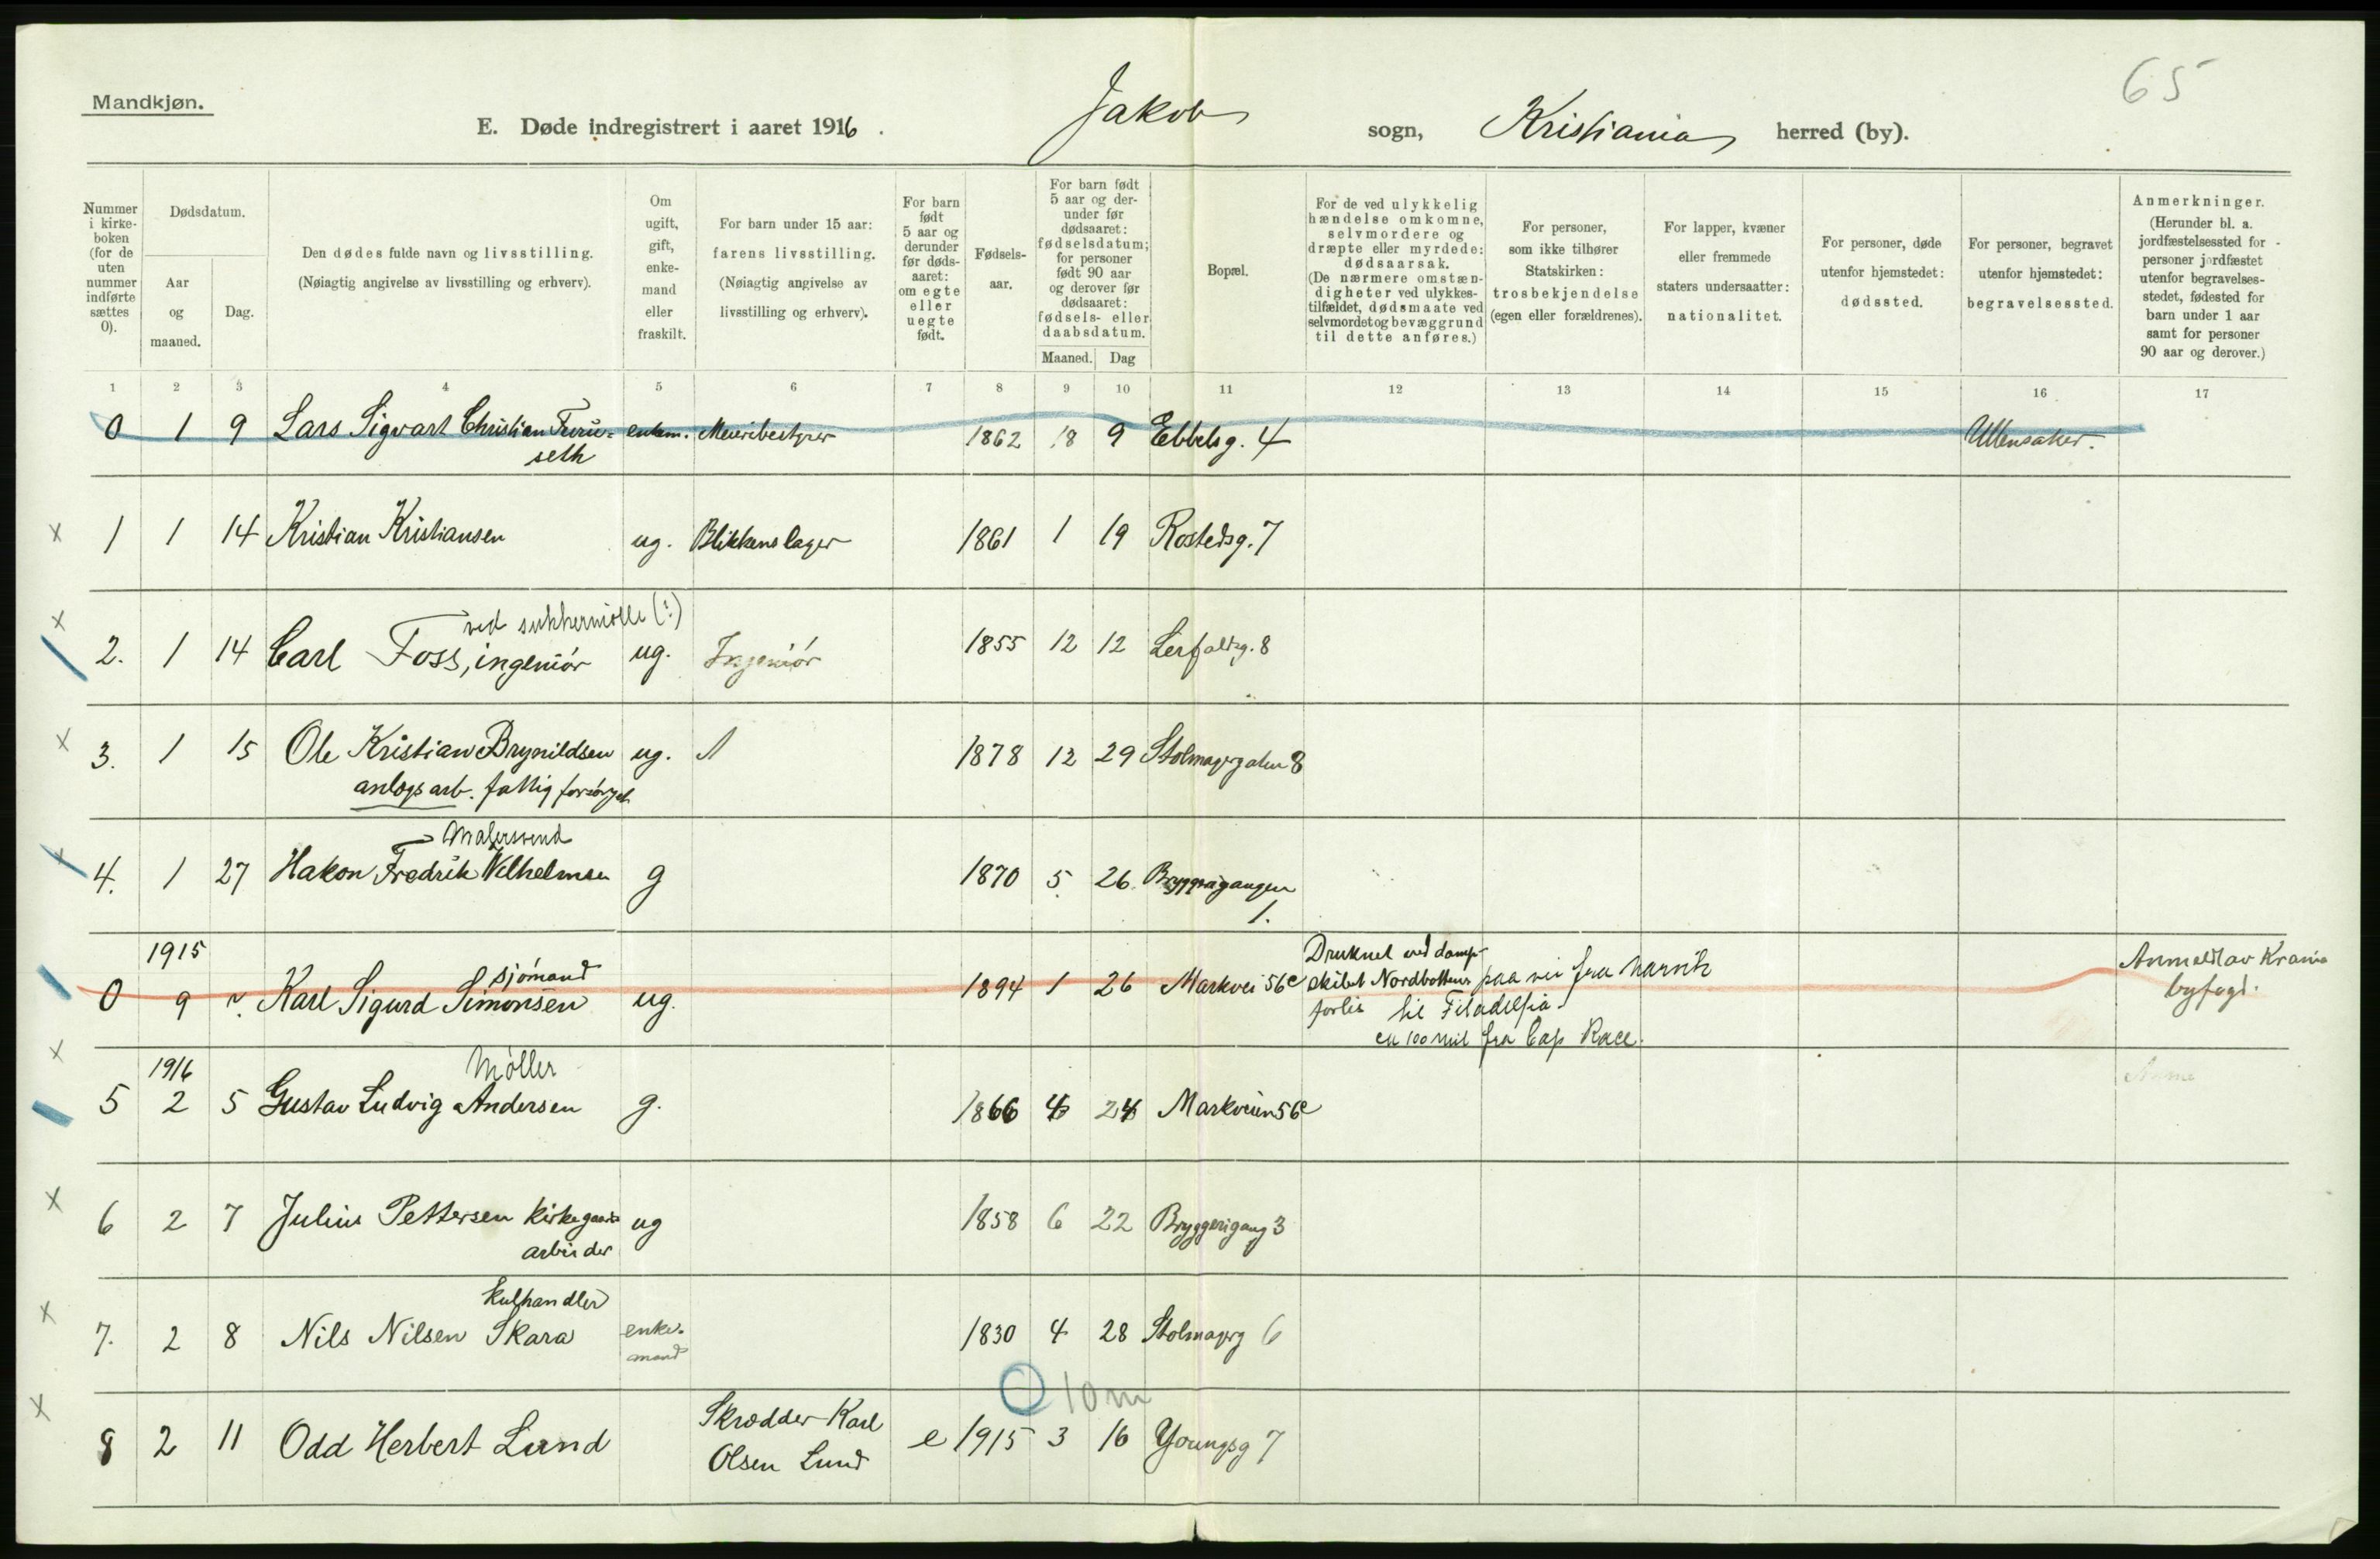 65
Mandkjøn.
E. Døde indregistrert i aaret 1916. Jakob sogn, Kristiania herred (by).
Nummer i kirke-boken (for de uten nummer indførte sættes 0).
Dødsdatum.
Aar og maaned.
Dag.
Den dødes fulde navn og livsstilling.
(Nøiagtig angivelse av livsstilling og erhverv).
Om ugift, gift, enke-mand eller fraskilt.
For barn under 15 aar: farens livsstilling.
(Nøiagtig angivelse av livsstilling og erhverv).
For barn født 5 aar og derunder før døds-aaret: om egte eller uegte født.
Fødsels-aar.
For barn født 5 aar og der-under før dødsaaret: fødselsdatum; for personer født 90 aar og derover før dødsaaret: fødsels- eller daabsdatum.
Maaned. Dag
Bopæl.
For de ved ulykkelig hændelse omkomne, selvmordere og dræpte eller myrdede: dødsaarsak.
(De nærmere omstæn-digheter ved ulykkes-tilfældet, dødsmaate ved selvmordet og bevæggrund til dette anføres.)
For personer, som ikke tilhører Statskirken: trosbekjendelse (egen eller forældrenes).
For lapper, kvæner eller fremmede staters undersaatter: nationalitet.
For personer, døde utenfor hjemstedet: dødssted.
For personer, begravet utenfor hjemstedet: begravelsessted.
Anmerkninger.
(Herunder bl. a. jordfæstelsessted for personer jordfæstet utenfor begravelses-stedet, fødested for barn under 1 aar samt for personer 90 aar og derover.)
1 2 3 4 5 6 7 8 9 10 11 12 13 14 15 16 17
0 1 9 Lars Sigvart Christian Furu= enkem. Meieribestyrer 1862 18 9 Ebbelsg. 4 Ullensaker.
seth
x 1 1 14 Kristian Kristiansen ug. Blikkenslager 1861 1 19 Rostedsg. 7
x ved sukkermölle (?)
2. 1 14 Carl Foss, ingeniör ug. Ingeniör 1855 12 12 Lerfaldsg. 8
x 3. 1 15 Ole Kristian Brynildsen ug. 1878 12 29 Stolmagergaten 8
anlægsarb. fattigforsörget
Malersvend
x 4. 1 27 Hakon Fredrik Vilhelmsen g 1870 5. 26. Bryggerigangen
1.
1915
sjömand Druknet ved damp-
0 9 Karl Sigurd Simonsen ug. 1894 1 26 Markvei 56c skibet Nordbottens paa vei fra Narvik Anmeldt av Krania
forlis til Filadelfia byfogd.
ca 100 mil fra Cap Race.
1916 Möller
x 5 2 5 Gustav Ludvig Andersen g. 1866 4 24 Markveien 56c
x 6 2 7 Julius Pettersen kirkegaards ug 1858 6 22 Bryggerigang 3
arbeider
Kulhandler
x 7. 2 8 Nils Nilsen Skara enke- 1830 4 28 Stolmagerg 6
mand
10 m
x Skrædder Karl
8 2 11 Odd Herbert Lund e 1915 3 16 Youngsg 7
Olsen Lund